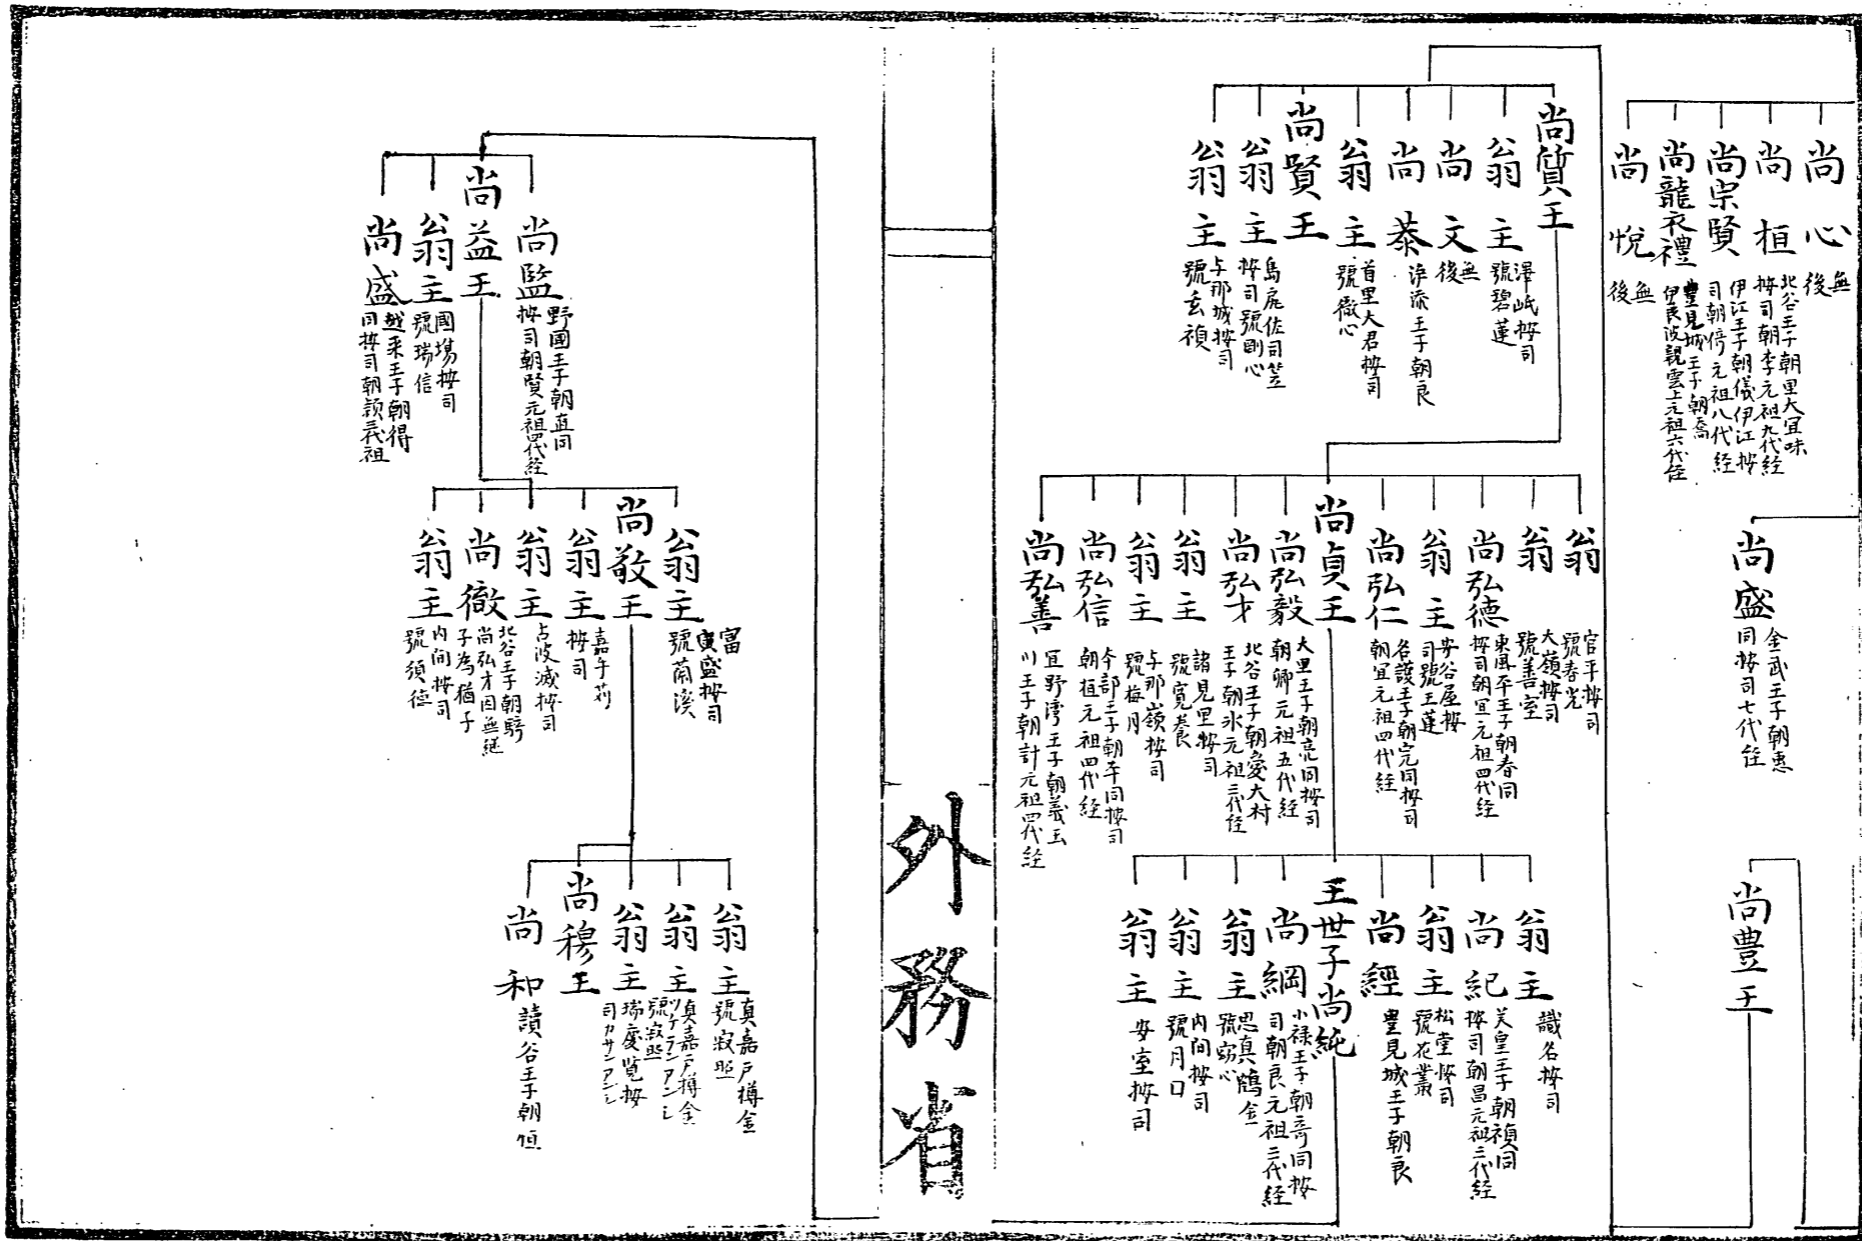 尚心 無後
尚桓 北谷王子朝里大宜味
按司朝李元祖九代経
尚宗賢 伊江王子朝儀伊江按
司朝倚元祖八代経
尚龍衣禮 豊見城王子朝喬
伊良波親雲上元祖六代侄
尚悅 無後
尚盛 金武王子朝惠
同按司七代侄
尚豊王
尚質王
翁主 澤岻按司
號碧蓮
尚文 無後
尚恭 浄添王子朝良
翁主 首里大君按司
號徹心
尚賢王
翁主 島尻佐司笠
按司號剛心
翁主 与那城按司
號玄禎
翁 宮平按司
號春光
翁 大嶺按司
號善室
尚弘德 東風平王子朝春同
按司朝宜元祖四代経
翁主 安谷屋按
司號玉蓮
尚弘仁 名護王子朝完同按司
朝宜元祖四代経
尚貞王
尚弘毅 大里王子朝亮同按司
朝卿元祖五代経
尚弘才 北谷王子朝愛大村
王子朝氷元祖三代侄
翁主 諸見里按司
號寬養
翁主 与那嶺按司
號梅月
尚弘信 今部王子朝平同按司
朝植元祖四代経
尚弘善 宜野湾王子朝義玉
川王子朝計元祖四代経
翁主 識名按司
尚紀 美里王子朝禎同
按司朝昌元祖三代経
翁主 松堂按司
號花叢
尚經 豊見城王子朝良
王世子尚純
尚綱 小禄王子朝奇同按
司朝良元祖三代経
翁主 思真鶴金
號窈心
翁主 内间按司
號月口
翁主 安室按司
外務省
尚監 野國王子朝直同
按司朝賢元祖四代経
尚益王
翁主 國場按司
號瑞信
尚盛 越来王子朝得
同按司朝顕元祖
翁主 富
寅盛按司
號蘭溪
尚敬王
翁主 嘉手苅
按司
翁主 占波减按司
尚徹 北谷王子朝騎
尚弘才因無継
子為猶子
翁主 内间按司
號須德
翁主 真嘉戸樽金
號寂照
翁主 真嘉戸樽金
ツケランアンシ
號寂照
翁主 瑞慶覧按
司カサンアンシ
尚穆王
尚和 讀谷王子朝恒